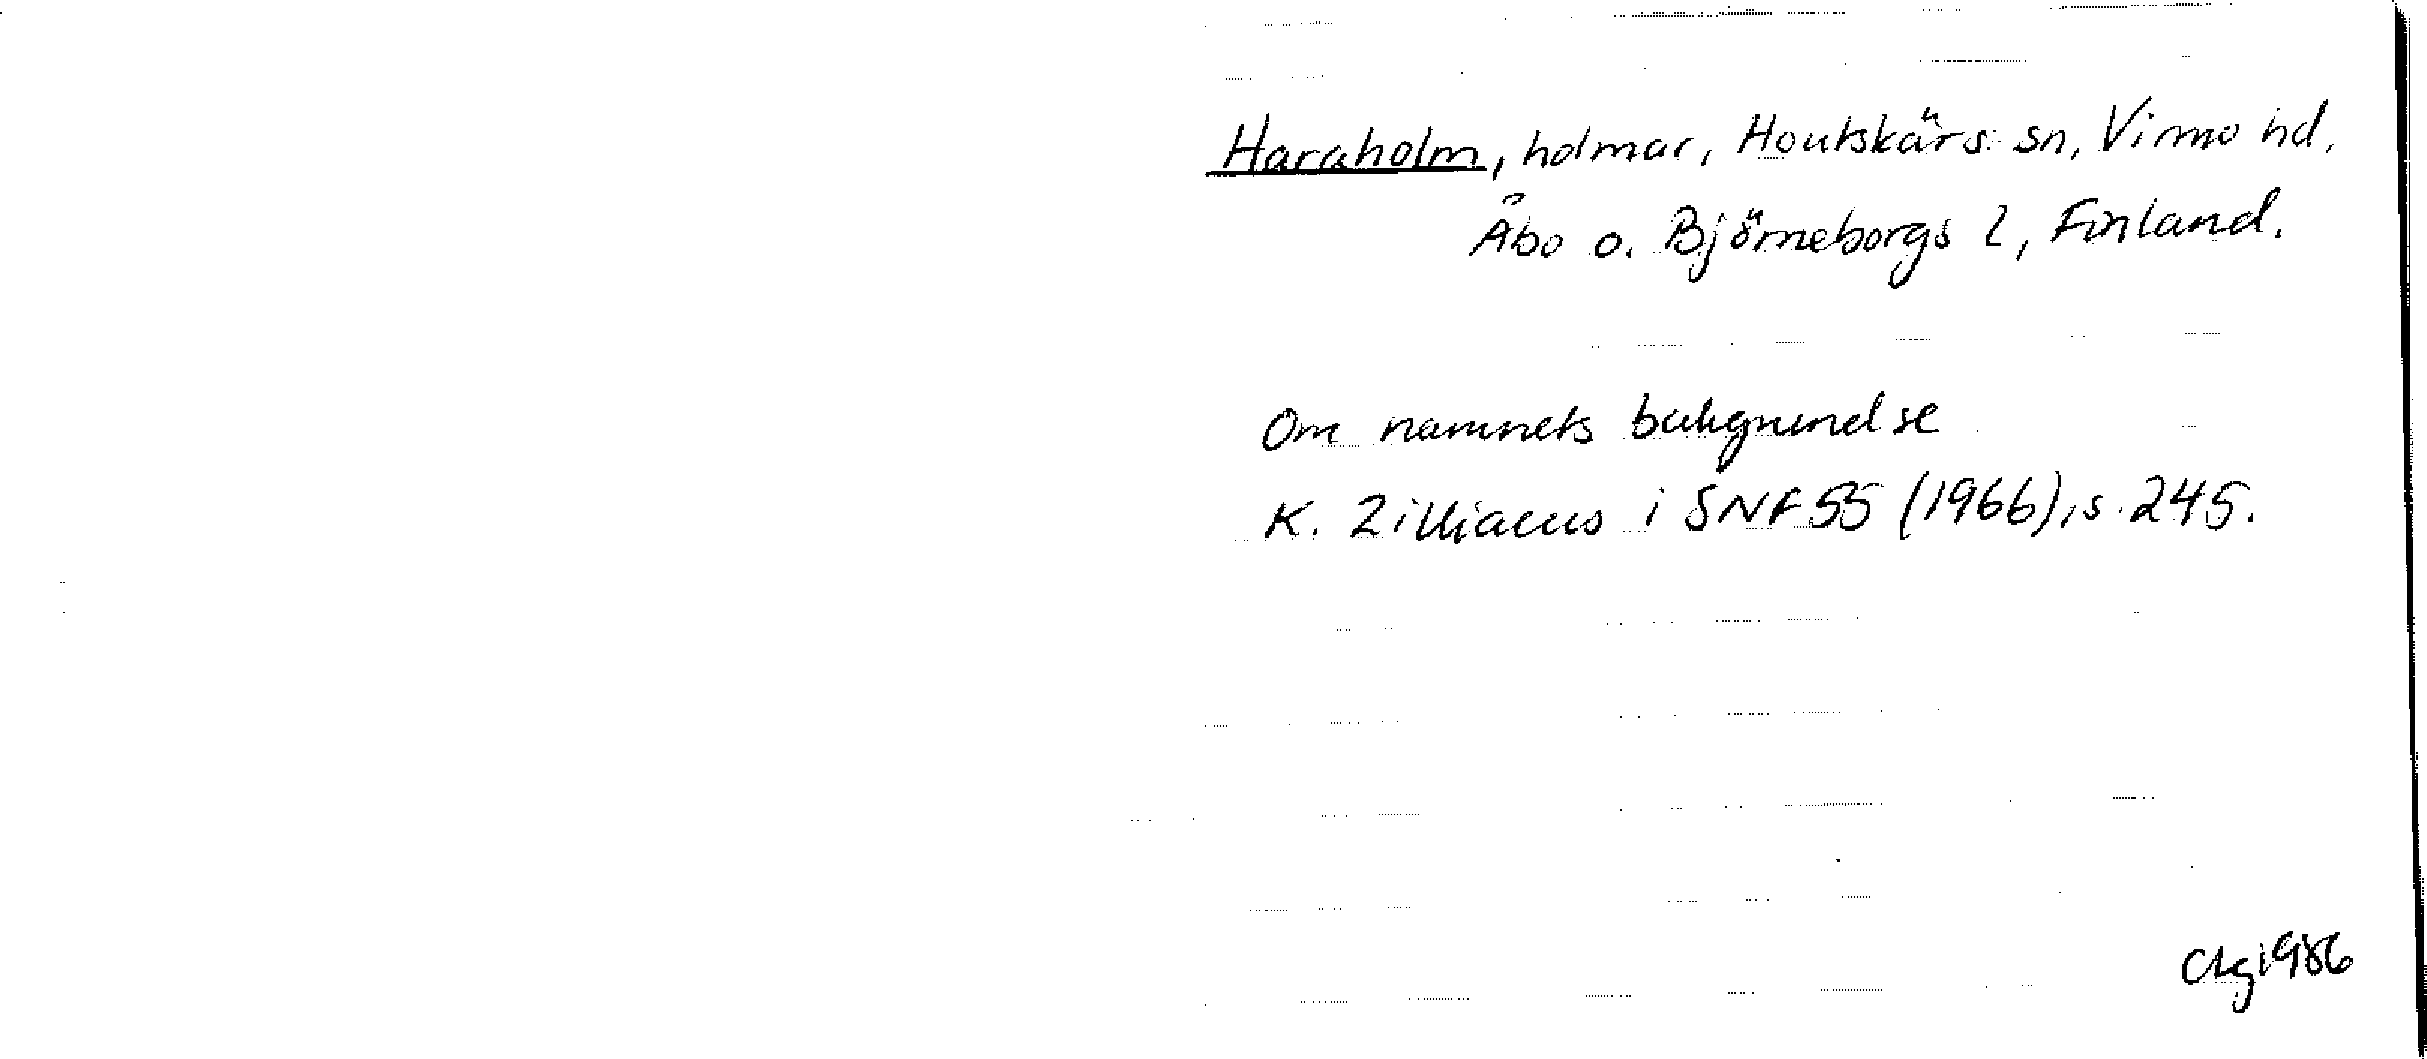 Haraholm, holmar, Houtskärs sn, Virmo hd,
Åbo o. Björneborgs l, Finland.
Om namnets bakgrund se
K. Zilliacus i SNF 55 (1966), s. 245.
1986